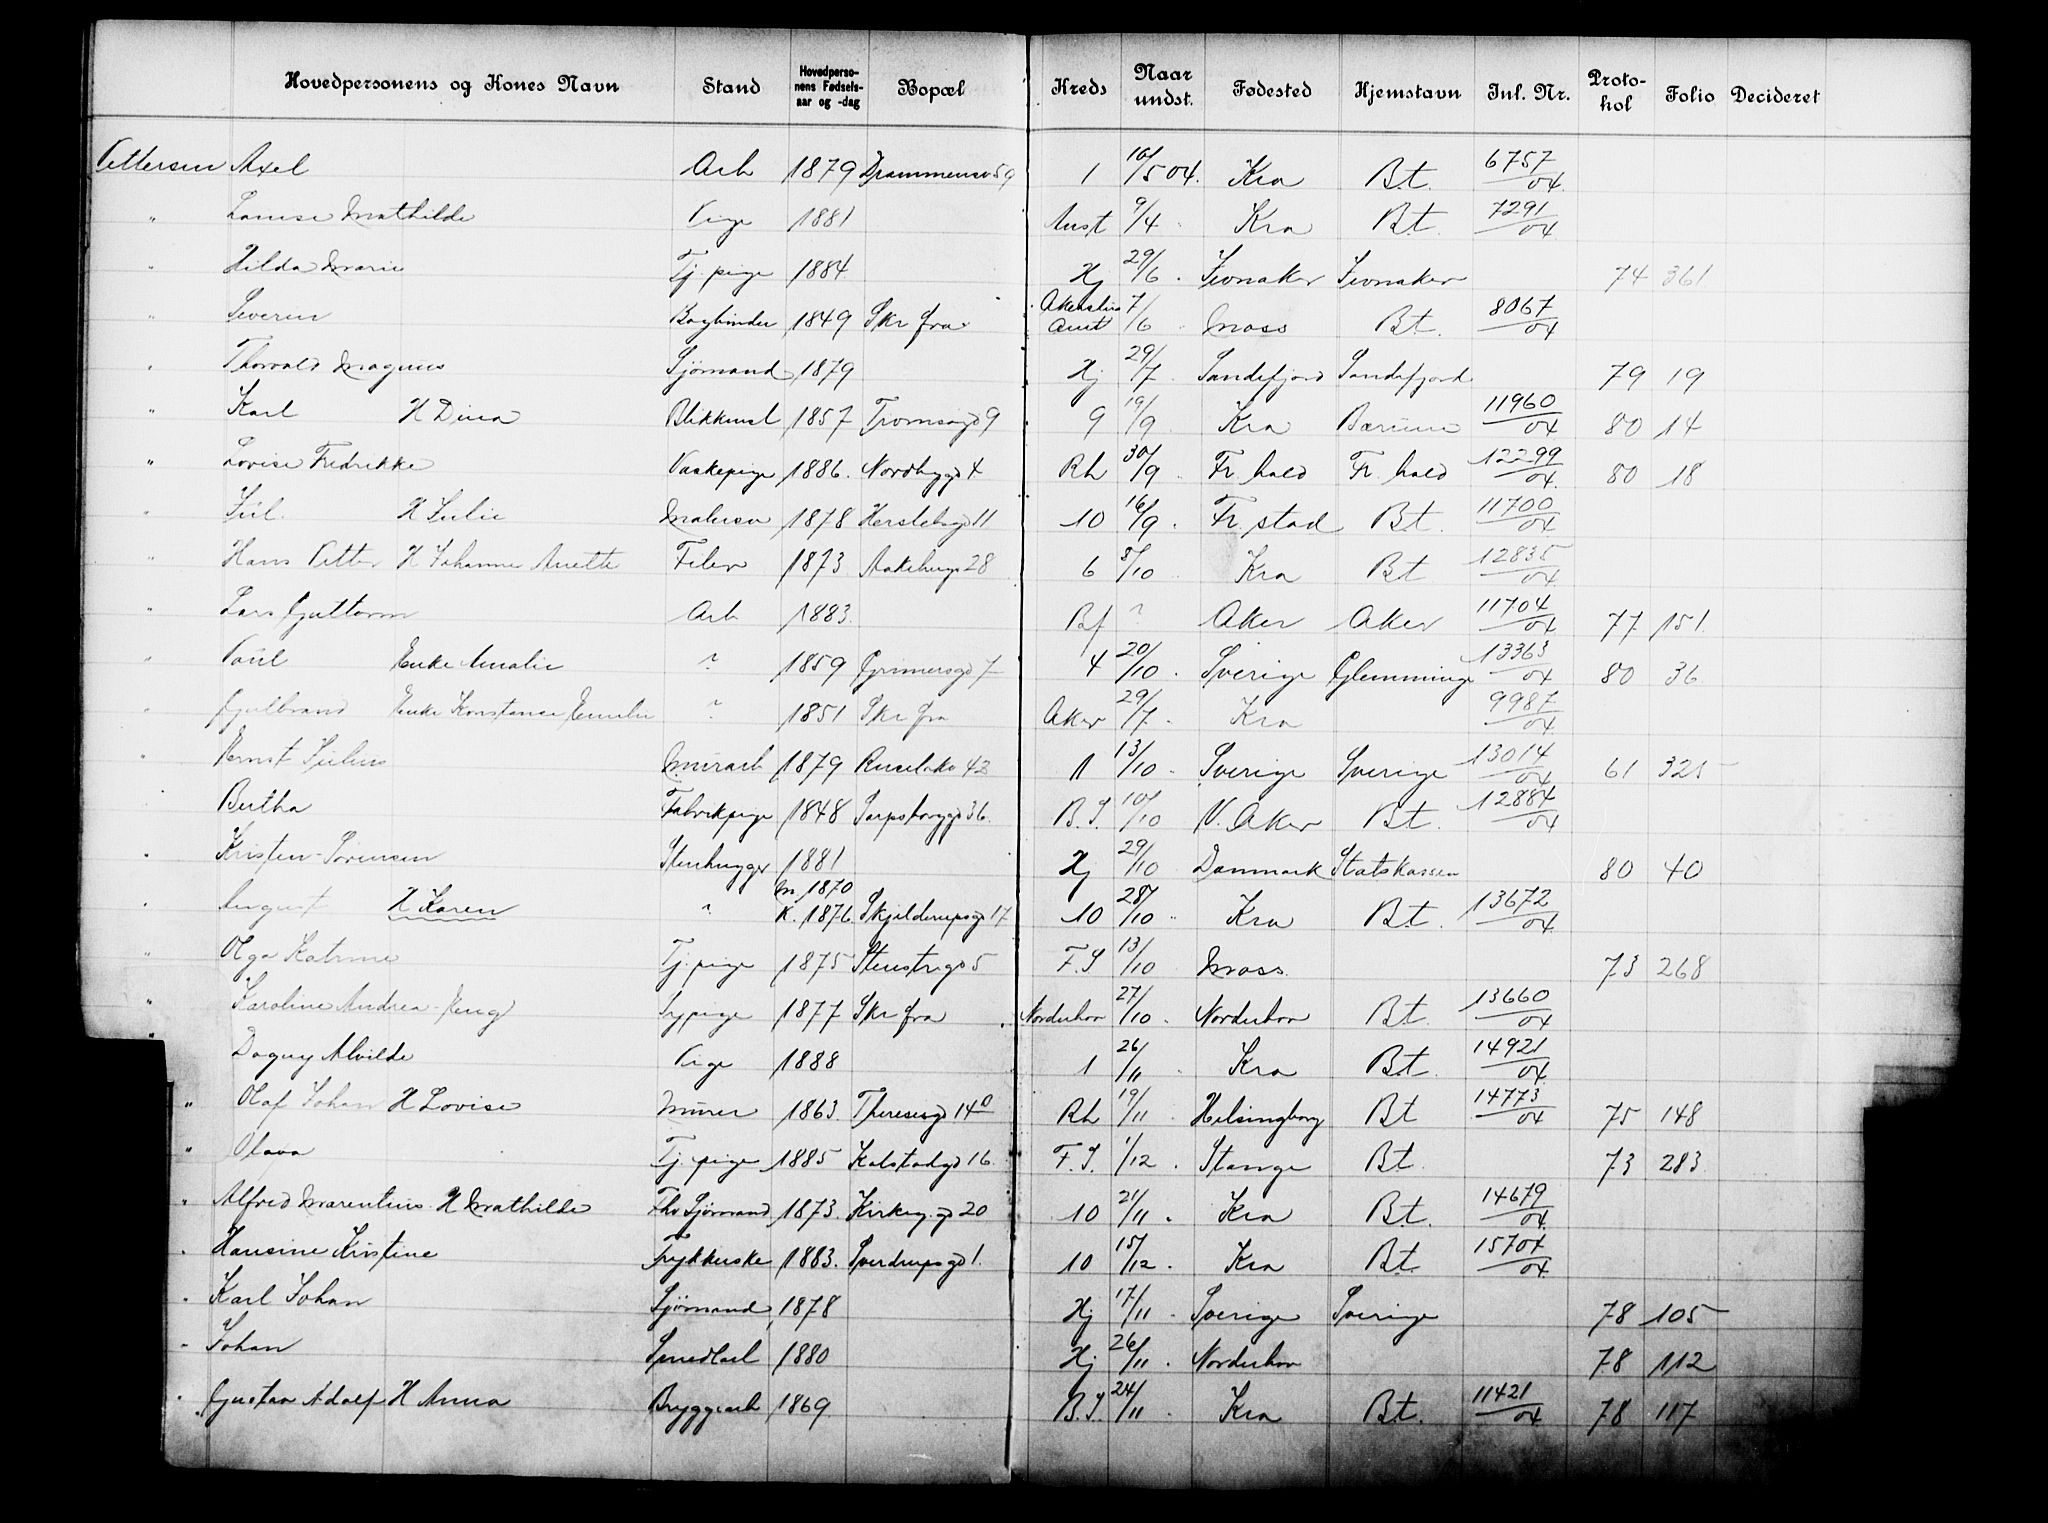 Hovedpersonens og Kones Navn Stand Hovedpersonens Fødselsaar og -dag Bopæl Kreds Naar undst. Fødested Hjemstavn Inl. Nr. Protokol Folio Decideret
Pettersen Axel Arb 1879 Drammensv 59 1 10/5 04. Kra Bt. 6757/04
" Louise Mathilde Pige 1881 Aust 9/4 " Kra Bt. 7291/04
" Hilda Marie Tj. pige 1884 Hj 29/6 " Jevnaker Jevnaker 74 361
" Severin Bogbinder 1849 Skr fra Akershus Amt 7/6 " Moss Bt. 8067/04
" Thorvald Magnus Sjömand 1879 Hj 29/7 " Sandefjord Sandefjord 79 19
" Karl H Dina Blikkensl 1857 Tromsögd 9 9 19/9 " Kra Bærum 11960/04 80 14
" Lovise Fredrikke Vaskepige 1886. Nordbygd 4 Rh 30/9 " Fr. hald Fr. hald 12299/04 80 18
" Jul. H Julie Malersv 1878 Herslebsgd 11 10 16/9 " Fr. stad Bt. 11700/04
" Hans Petter H Johanne Anette Filer 1873 Aakebergv 28 6 8/10 " Kra Bt 12835/04
" Lars Guttorm Arb 1883. Bf ? Aker Aker 11704/04 77 151
" Paul Enke Amalie ? 1859 Grimersgd 7 4 20/10 " Sverige Glemminge 13363/04 80 36
" Gulbrand Enke Konstance Emilie ? 1851 Skr fra Aker 29/7 " Kra 9987/04
" Ernst Julius Murarb 1879 Ruselökv 43 1 13/10 " Sverige Sverige 13014/04 61 325
" Bertha Fabrikpige 1848 Sarpsborggd 36. B. S. 10/10 V. Aker Bt. 12884/04
" Kristen Sörensen Stenhugger 1881 Hj 29/10 Danmark Statskassen 80 40
" August H Karen ? M. 1870 K. 1876 Skjelderupsgd 17 10 28/10 " Kra Bt. 13672/04
" Olga Katrine Tj. pige 1875 Stenstrgd 5 F. S 13/10 Moss. 73 268
" Karoline Andrea Sypige 1877 Skr fra Norderhov 27/10 " Norderhov Bt. 13660/04
" Dagny Alvilde Pige 1888 1 26/11 " Kra Bt. 14921/04
" Olaf Johan H Lovise Murer 1863. Theresesgd 14 Rh 19/11 " Helsingborg Bt 14773/04 75 148
" Olava Tj. pige 1885 Kalstadgd 16. F. S. 1/12 " Stange Bt. 73 283
" Alfred Marentius H Mathilde Fhv Sjömand 1873. Kirkeg. gd 20 10 21/11 " Kra Bt. 14679/04
" Hansine Kristine Trykkerske 1883. Sverdrupsgd 1. 10 15/12 " Kra Bt. 15704/04
" Karl Johan Sjömand 1878 Hj 17/11 " Sverige Sverige 78 105
" Johan Smedlærl 1880 Hj 26/11 " Norderhov 78 112
" Gustav Adolf H Anna Bryggearb 1869 B. S. 24/11 " Kra Bt. 11421/04 78 117